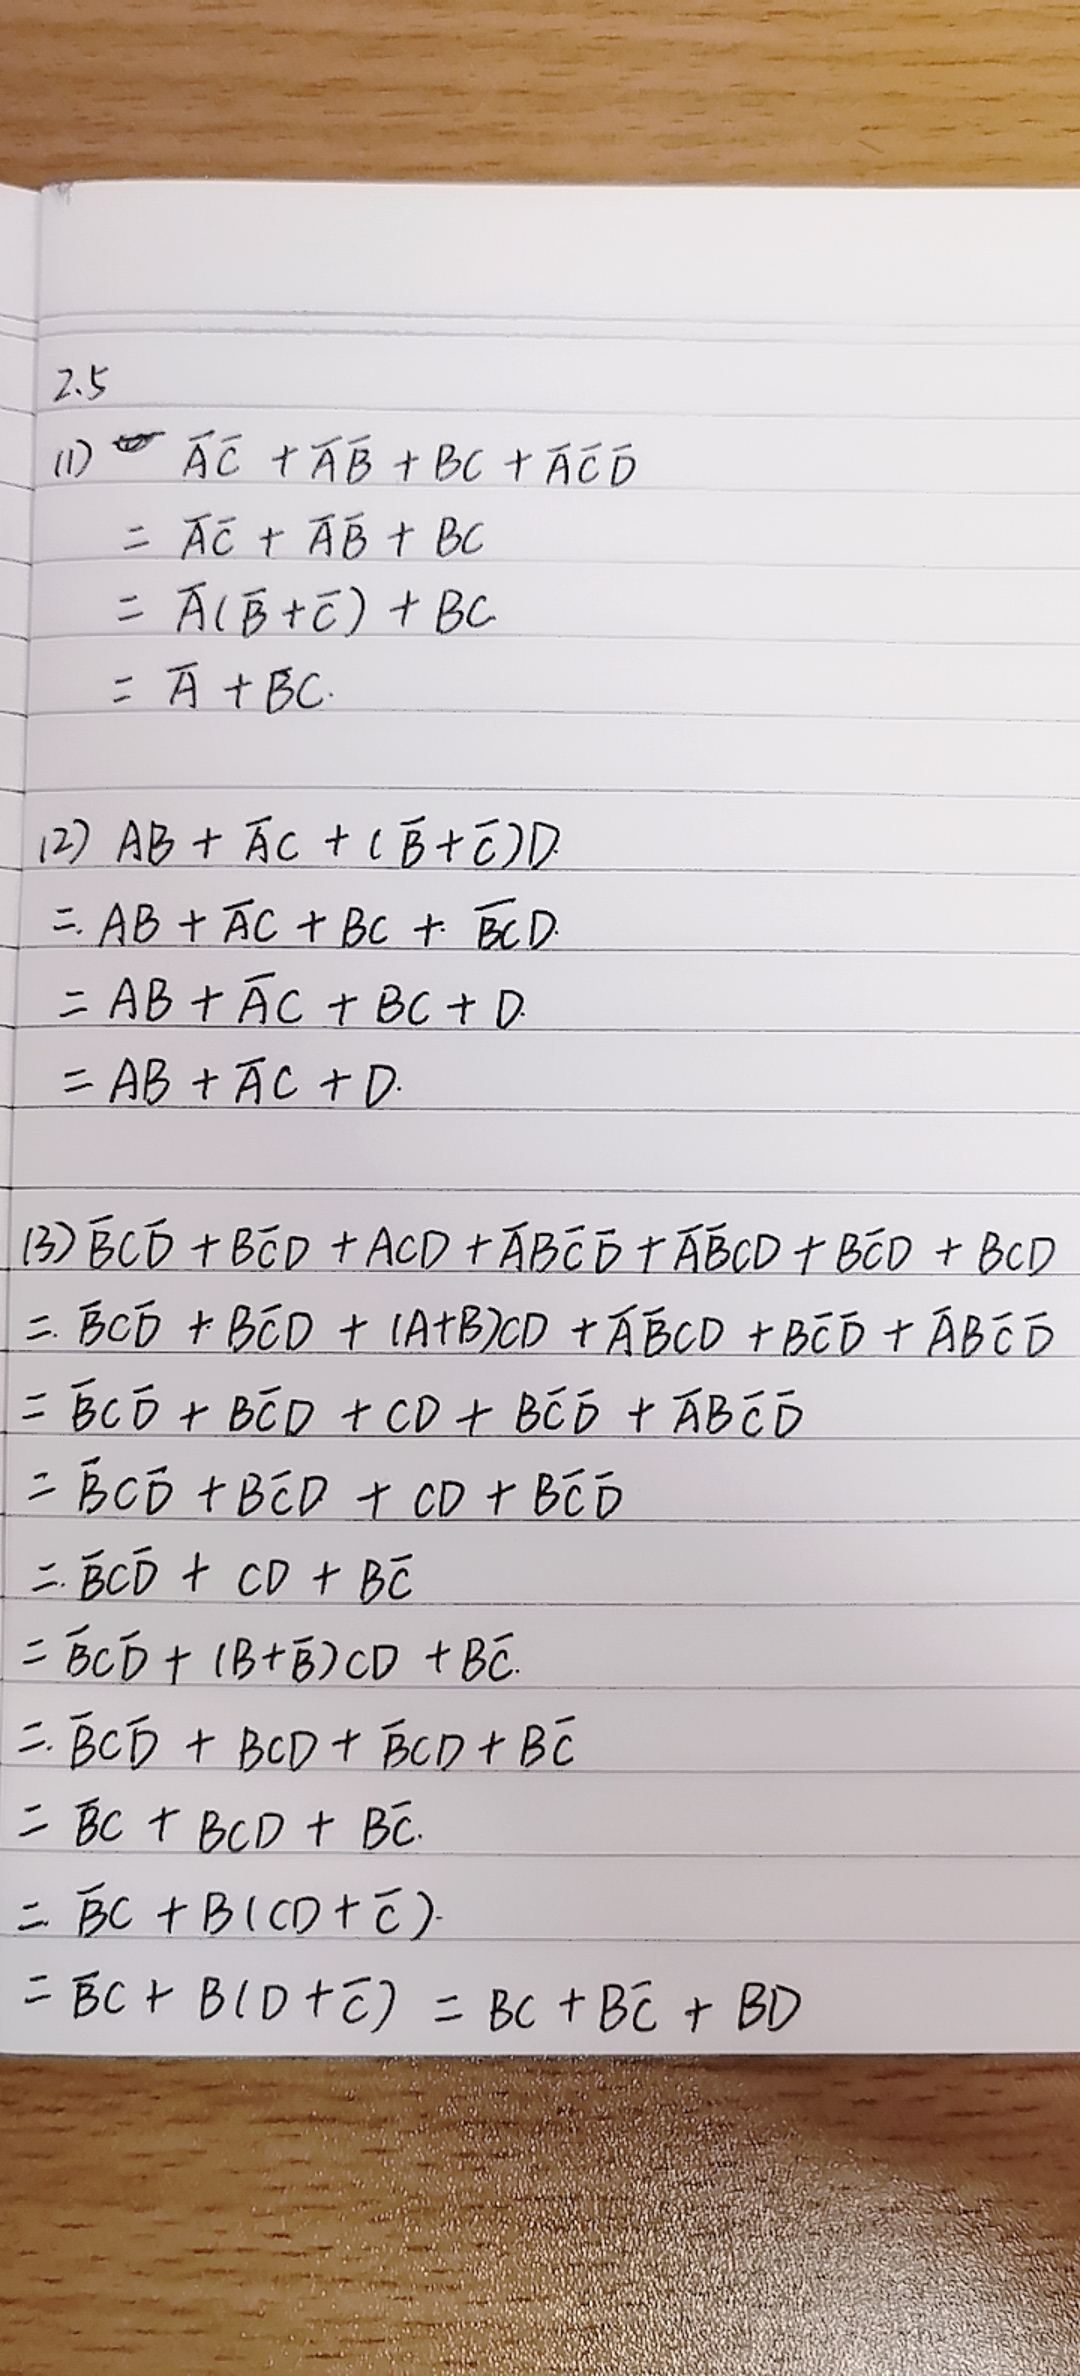 2.5
(1) A̅C̅ + A̅B̅ + BC + A̅C̅D̅
= A̅C̅ + A̅B̅ + BC
= A̅(B̅+C̅) + BC
= A̅ + BC.
(2) AB + A̅C + (B̅+C̅)D.
= AB + A̅C + BC + B̅C̅D.
= AB + A̅C + BC + D.
= AB + A̅C + D.
(3) B̅CD̅ + BC̅D + ACD + A̅BC̅D̅ + A̅B̅CD + BC̅D + BCD
= B̅CD̅ + BC̅D + (A+B)CD + A̅B̅CD + BC̅D̅ + A̅BC̅D̅
= B̅CD̅ + BC̅D + CD + BC̅D̅ + A̅BC̅D̅
= B̅CD̅ + BC̅D + CD + BC̅D̅
= B̅CD̅ + CD + BC̅
= B̅CD̅ + (B+B̅)CD + BC̅.
= B̅CD̅ + BCD + B̅CD + BC̅
= B̅C + BCD + BC̅.
= B̅C + B(CD+C̅).
= B̅C + B(D+C̅) = BC + BC̅ + BD